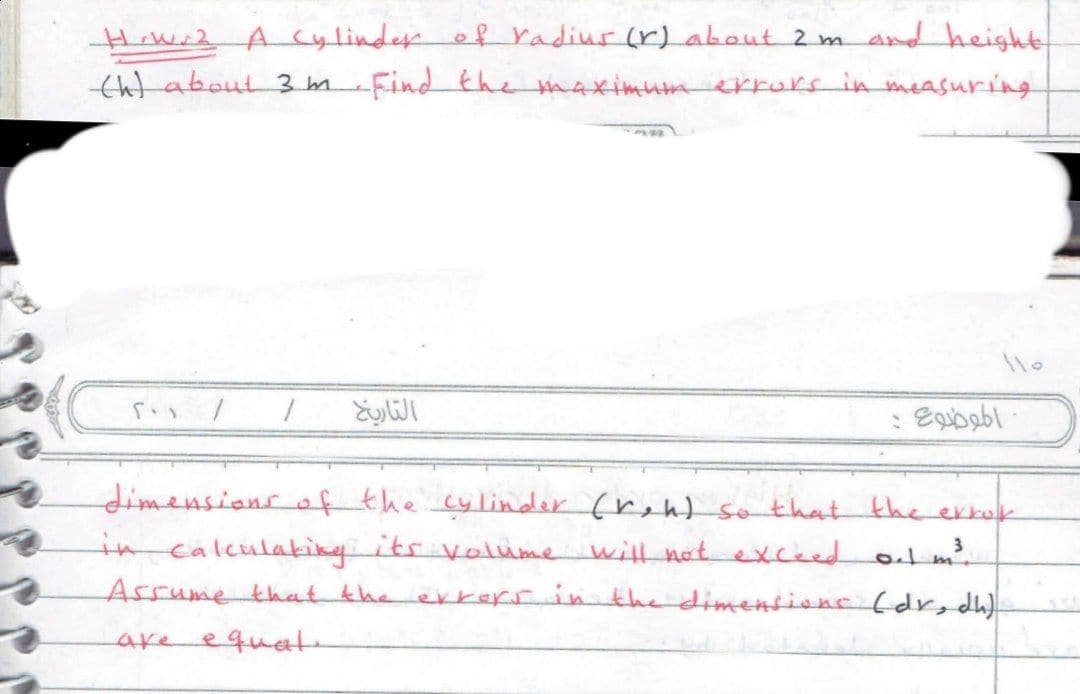 H.W.2 A cylinder of radius (r) about 2 m and height
(h) about 3 m. Find the maximum errors in measuring
١١٥
الموضوع :
التاريخ / / ٢٠٠١
dimensions of the cylinder (r,h) so that the error
in calculating its volume will not exceed 0.1 m³.
Assume that the errors in the dimensions (dr, dh)
are equal.